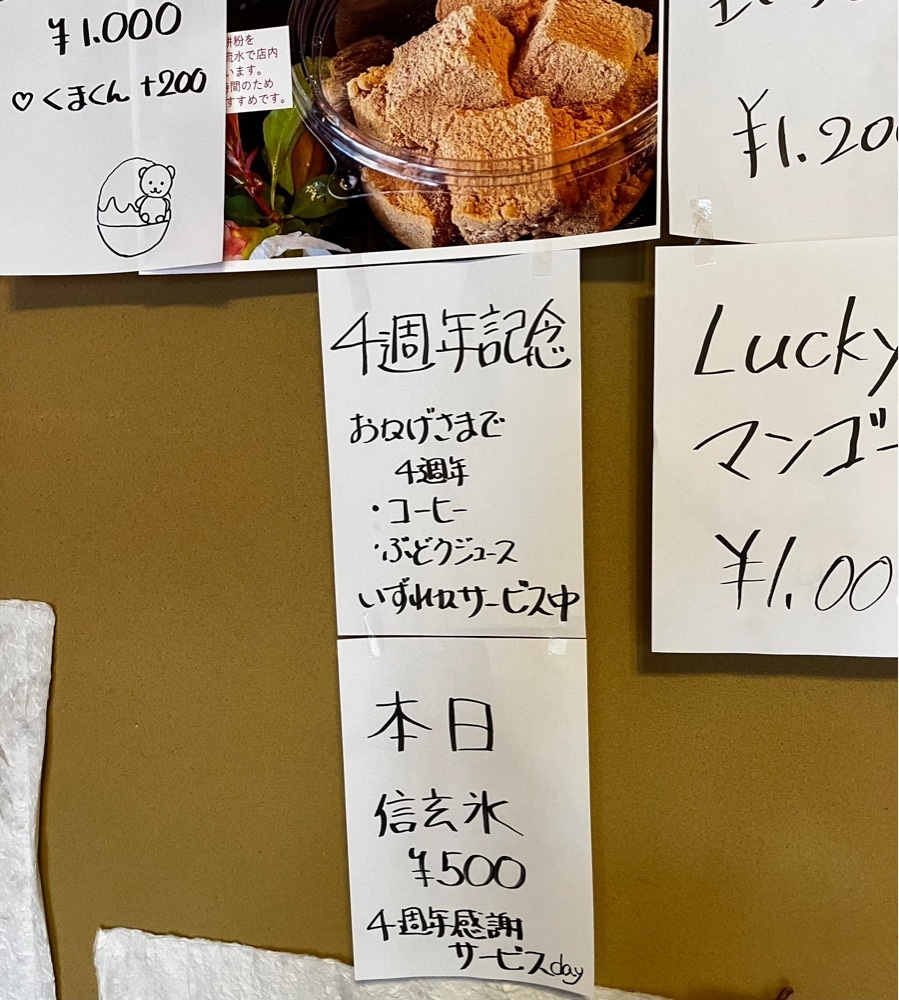 ¥1.000
♡くまくん +200
粉を
流水で店内
います。
間のため
すすめです。
¥1.20
4週年記念
おかげさまで
4週年
・コーヒー
・ぶどうジュース
いずれかサービス中
Lucky
マンゴー
¥1.00
本日
信玄氷
¥500
4週年感謝
サービスday